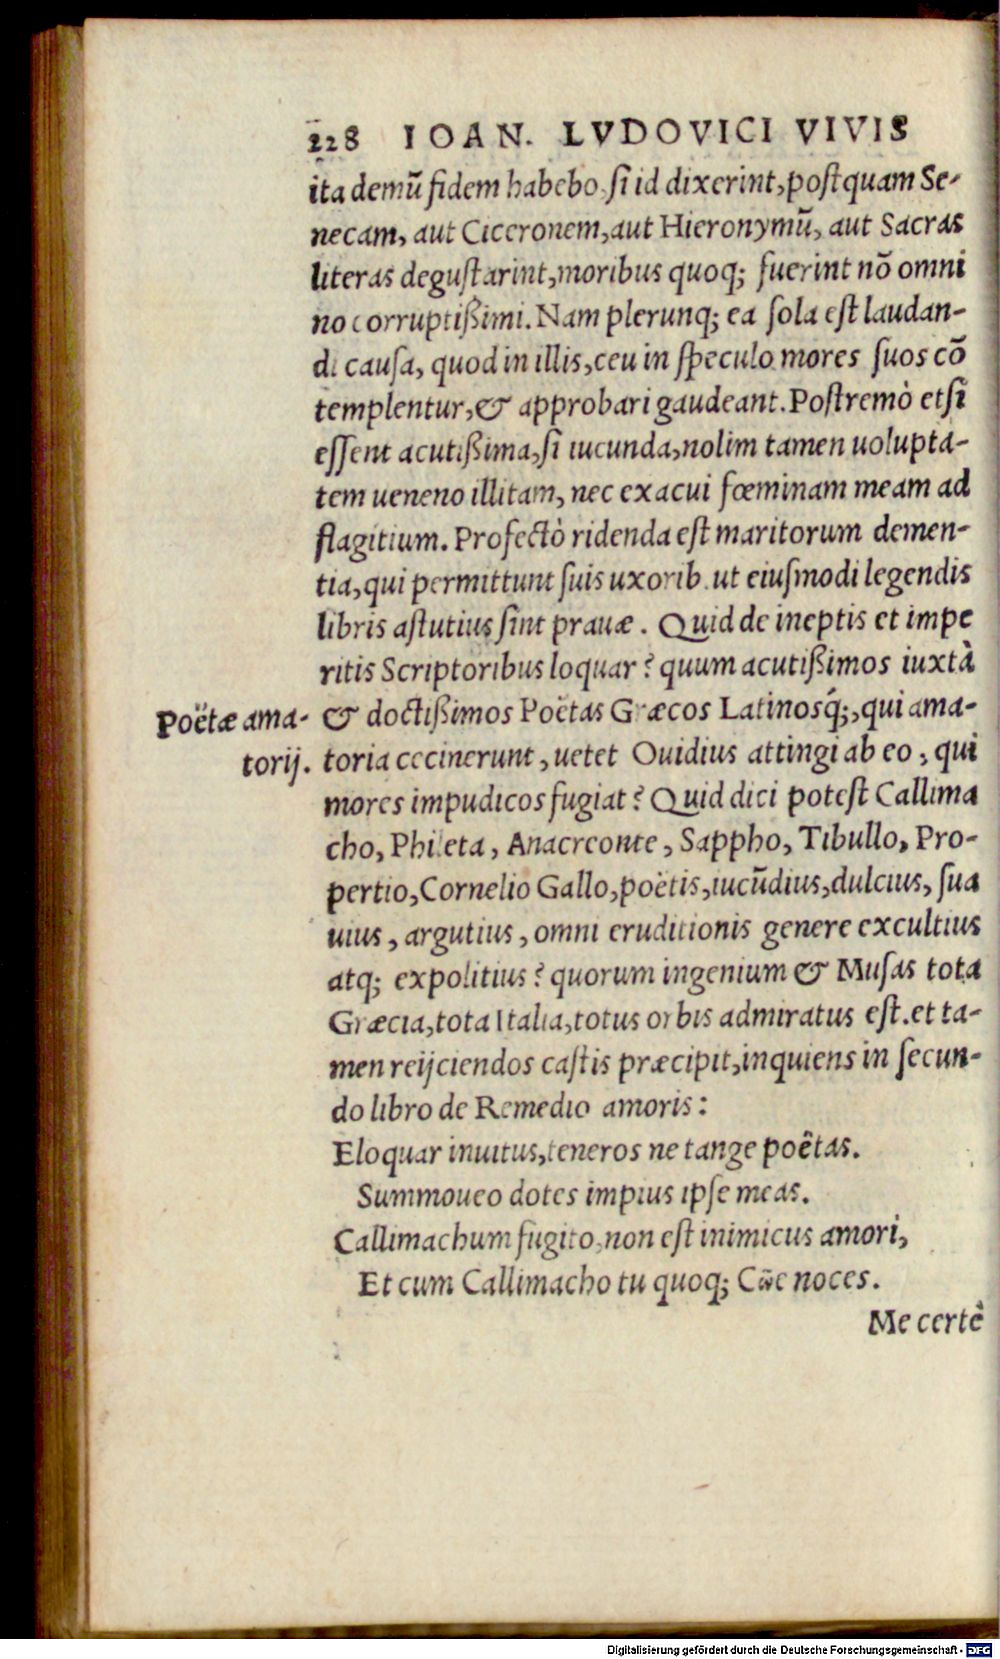 228 IOAN. LVDOVICI VIVIS
ita demũ fidem habebo, ſi id dixerint, poſtquam Se-
necam, aut Ciceronem, aut Hieronymũ, aut Sacras
literas deguſtarint, moribus quoq; fuerint nõ omni
no corruptißimi. Nam plerunq; ea ſola eſt laudan-
di cauſa, quod in illis, ceu in ſpeculo mores ſuos cõ
templentur, & approbari gaudeant. Poſtremò etſi
eſſent acutißima, ſi iucunda, nolim tamen uolupta-
tem ueneno illitam, nec exacui fœminam meam ad
flagitium. Profectò ridenda eſt maritorum demen-
tia, qui permittunt ſuis uxorib. ut eiuſmodi legendis
libris aſtutius ſint prauæ. Quid de ineptis et impe
ritis Scriptoribus loquar? quum acutißimos iuxtà
Poëtæ ama-
torij.
& doctißimos Poëtas Græcos Latinosq́;, qui ama-
toria cecinerunt, uetet Ouidius attingi ab eo, qui
mores impudicos fugiat? Quid dici poteſt Callima
cho, Phileta, Anacreonte, Sappho, Tibullo, Pro-
pertio, Cornelio Gallo, poëtis, iucũdius, dulcius, ſua
uius, argutius, omni eruditionis genere excultius
atq; expolitius? quorum ingenium & Muſas tota
Græcia, tota Italia, totus orbis admiratus eſt. et ta-
men reijciendos caſtis præcipit, inquiens in ſecun-
do libro de Remedio amoris:
Eloquar inuitus, teneros ne tange poëtas.
Summoueo dotes impius ipſe meas.
Callimachum fugito, non eſt inimicus amori,
Et cum Callimacho tu quoq; noces.
Me certè
Digitalisierung gefördert durch die Deutsche Forschungsgemeinschaft - DFG